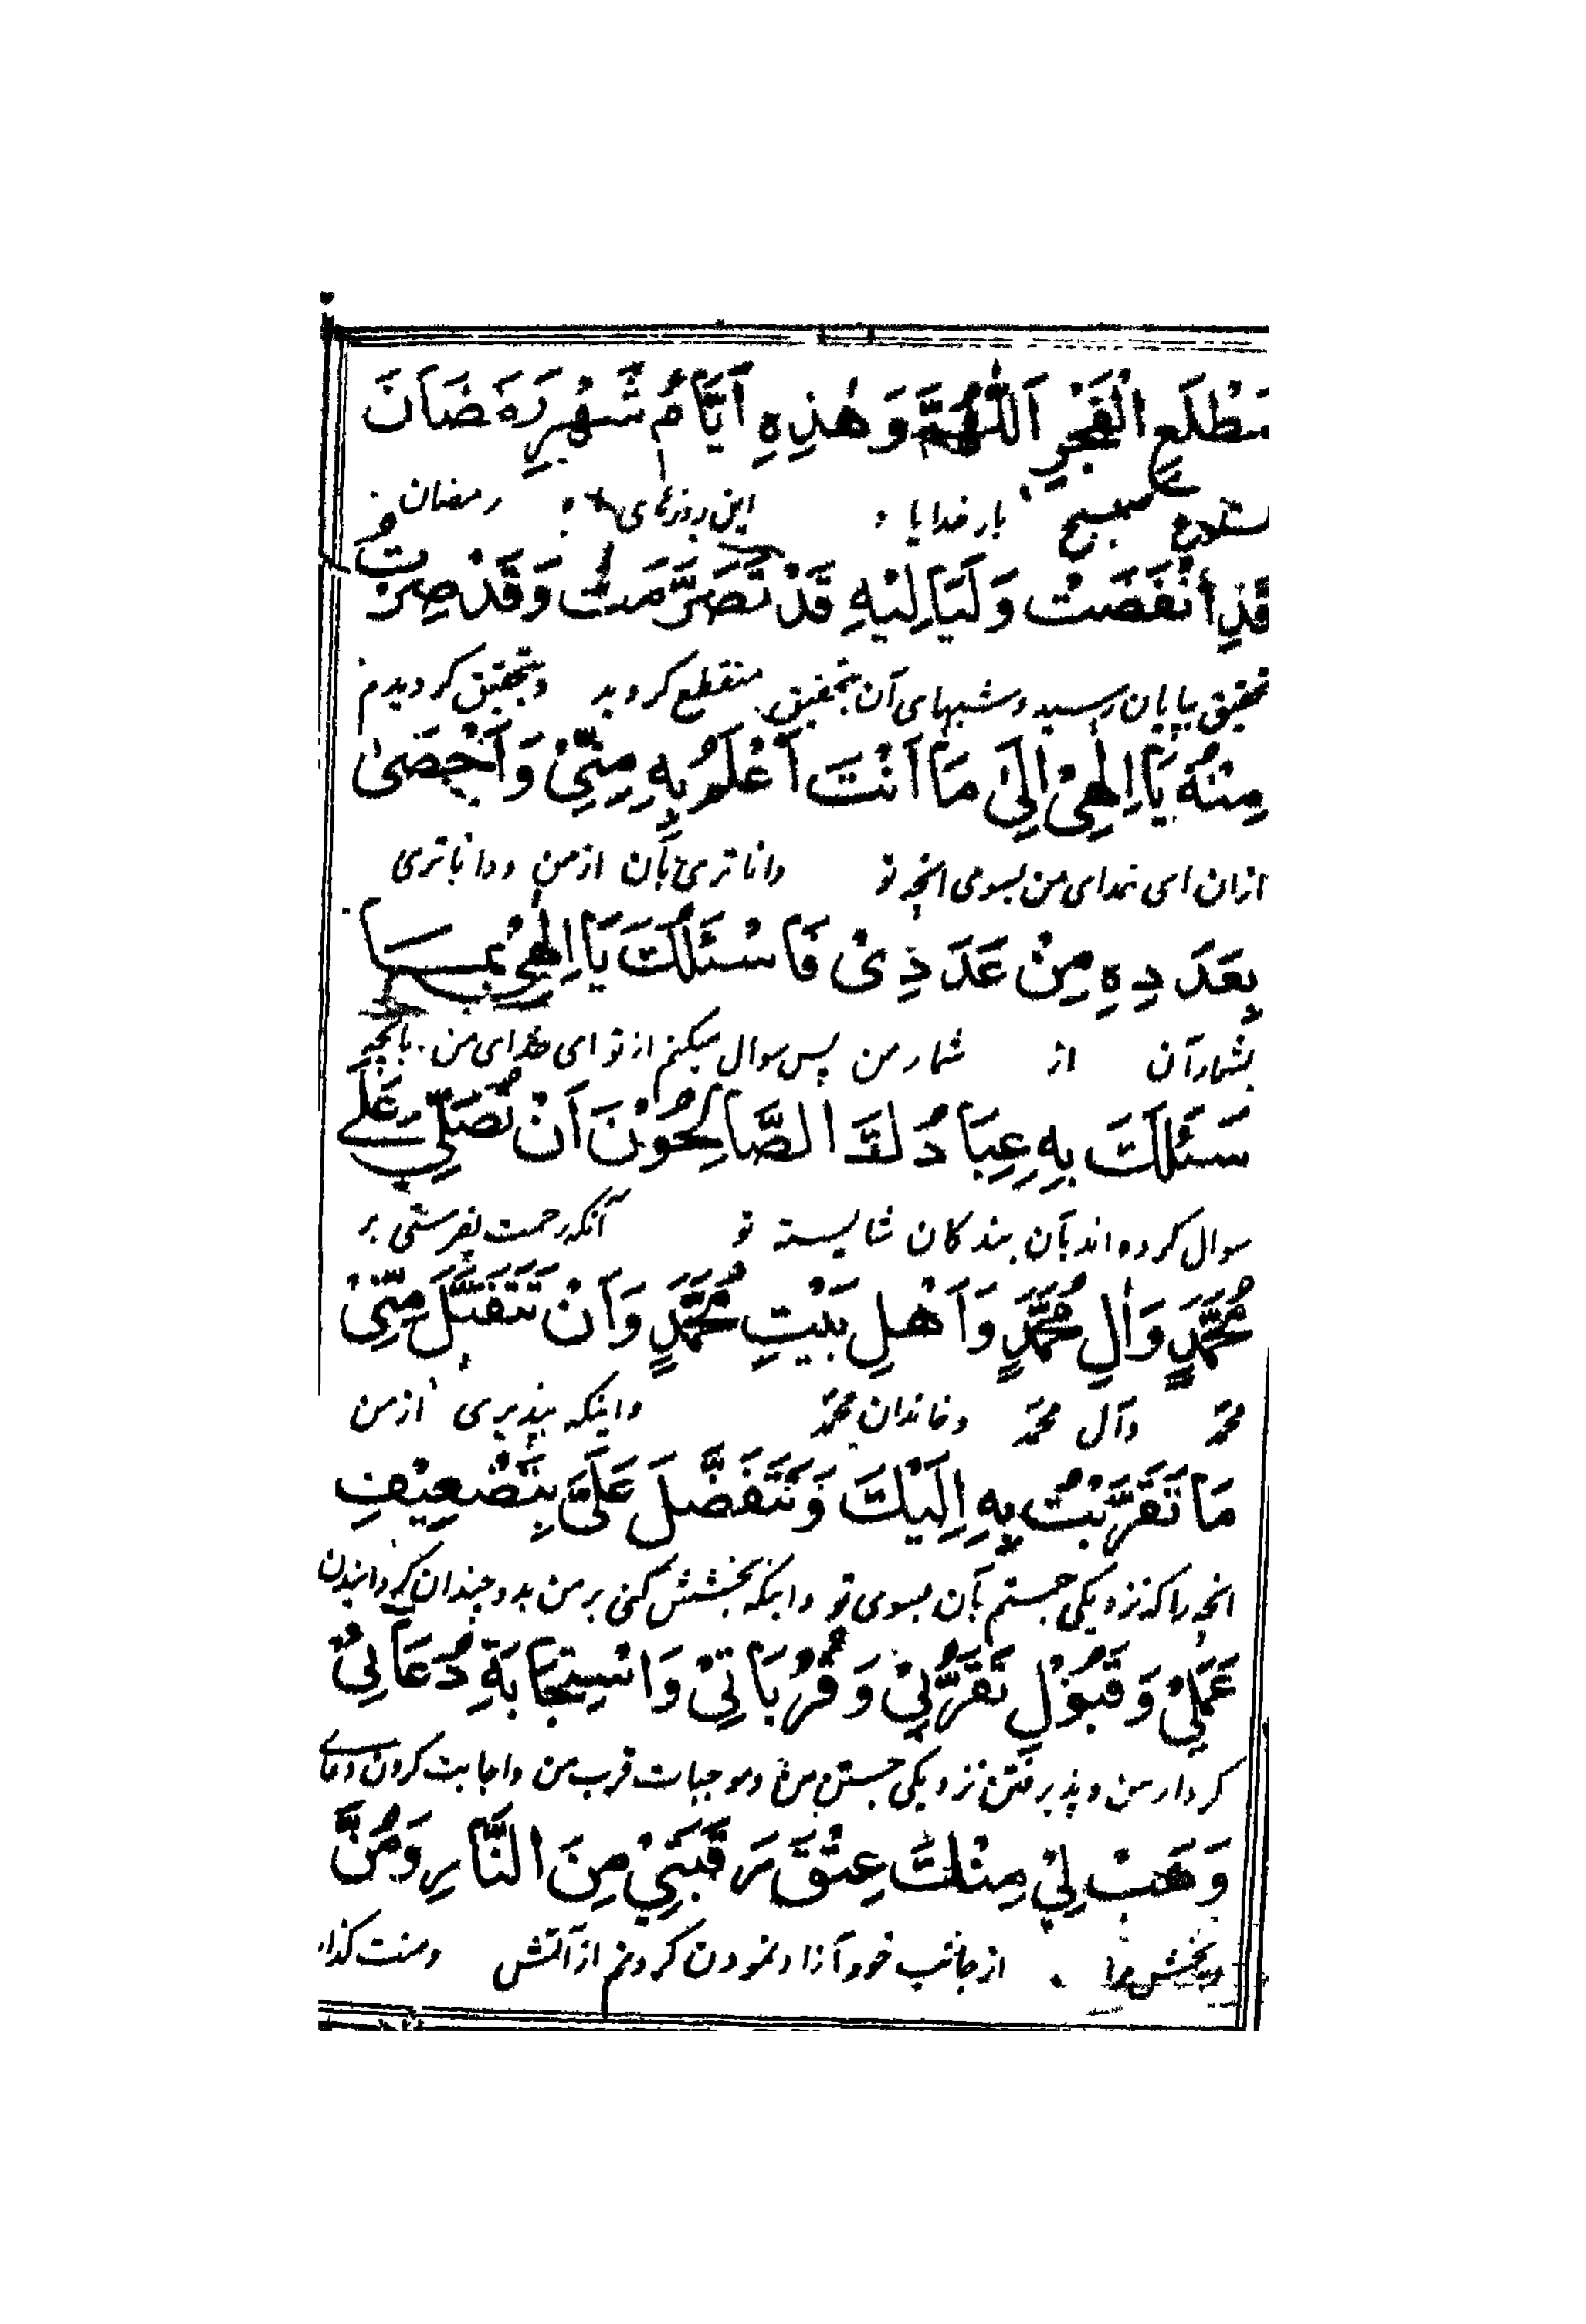 مَطْلَعِ الْفَجْرِ اَللّٰهُمَّ وَهٰذِهِ اَيَّامُ شَهْرِ رَمَضَانَ
صبح بار خدایا این روزهای رمضان
قَدِ انْقَضَتْ وَلَيَالِيْهِ قَدْ تَصَرَّمَتْ وَقَدْ صِرْتُ
تحقیق بپایان رسید و شبهای آن بتحقیق منقطع کردید و بتحقیق کردیدم
مِنْهُ يَا اِلٰهِىْ اِلىٰ مَا اَنْتَ اَعْلَمُ بِهِ مِنِّىْ وَاَحْصىٰ
ازان ای خدای من بسوی انچه تو داناتری بآن ازمن و داناتری
بِعَدَدِهِ مِنْ عَدَدِىْ فَاَسْئَلُكَ يَا اِلٰهِىْ بِمَا
بشمار آن از شمار من پس سوال میکنم از تو ای خدای من بانچه
سَئَلَكَ بِهِ عِبَادُكَ الصَّالِحُوْنَ اَنْ تُصَلِّىَ عَلٰى
سوال کرده اند بآن بندکان شایسته تو آنکه رحمت بفرستی بر
مُحَمَّدٍ وَاٰلِ مُحَمَّدٍ وَاَهْلِ بَيْتِ مُحَمَّدٍ وَاَنْ تَتَقَبَّلَ مِنِّىْ
محمد وآل محمد و خاندان محمد واینکه بپذیری ازمن
مَا تَقَرَّبْتُ بِهِ اِلَيْكَ وَتَتَفَضَّلَ عَلَىَّ بِتَضْعِيْفِ
انچه را که نزدیکی جستم بآن بسوی تو و اینکه بخشش کنی بر من بدوچندان کردانیدن
عَمَلِىْ وَقَبُوْلِ تَقَرُّبِىْ وَقُرُبَاتِىْ وَاسْتِجَابَةِ دُعَائِىْ
کردار من و پذیرفتن نزدیکی جستن من و موجبات قرب من و اجابت کردن دعای
وَهَبْ لِىْ مِنْكَ عِتْقَ رَقَبَتِىْ مِنَ النَّارِ وَمُنَّ
و بخش مرا از جانب خود آزاد نمودن کردنم از آتش و منت گذار